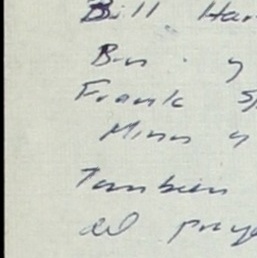 Bill Har
y
Frank Sp
y
Tambien
del proye